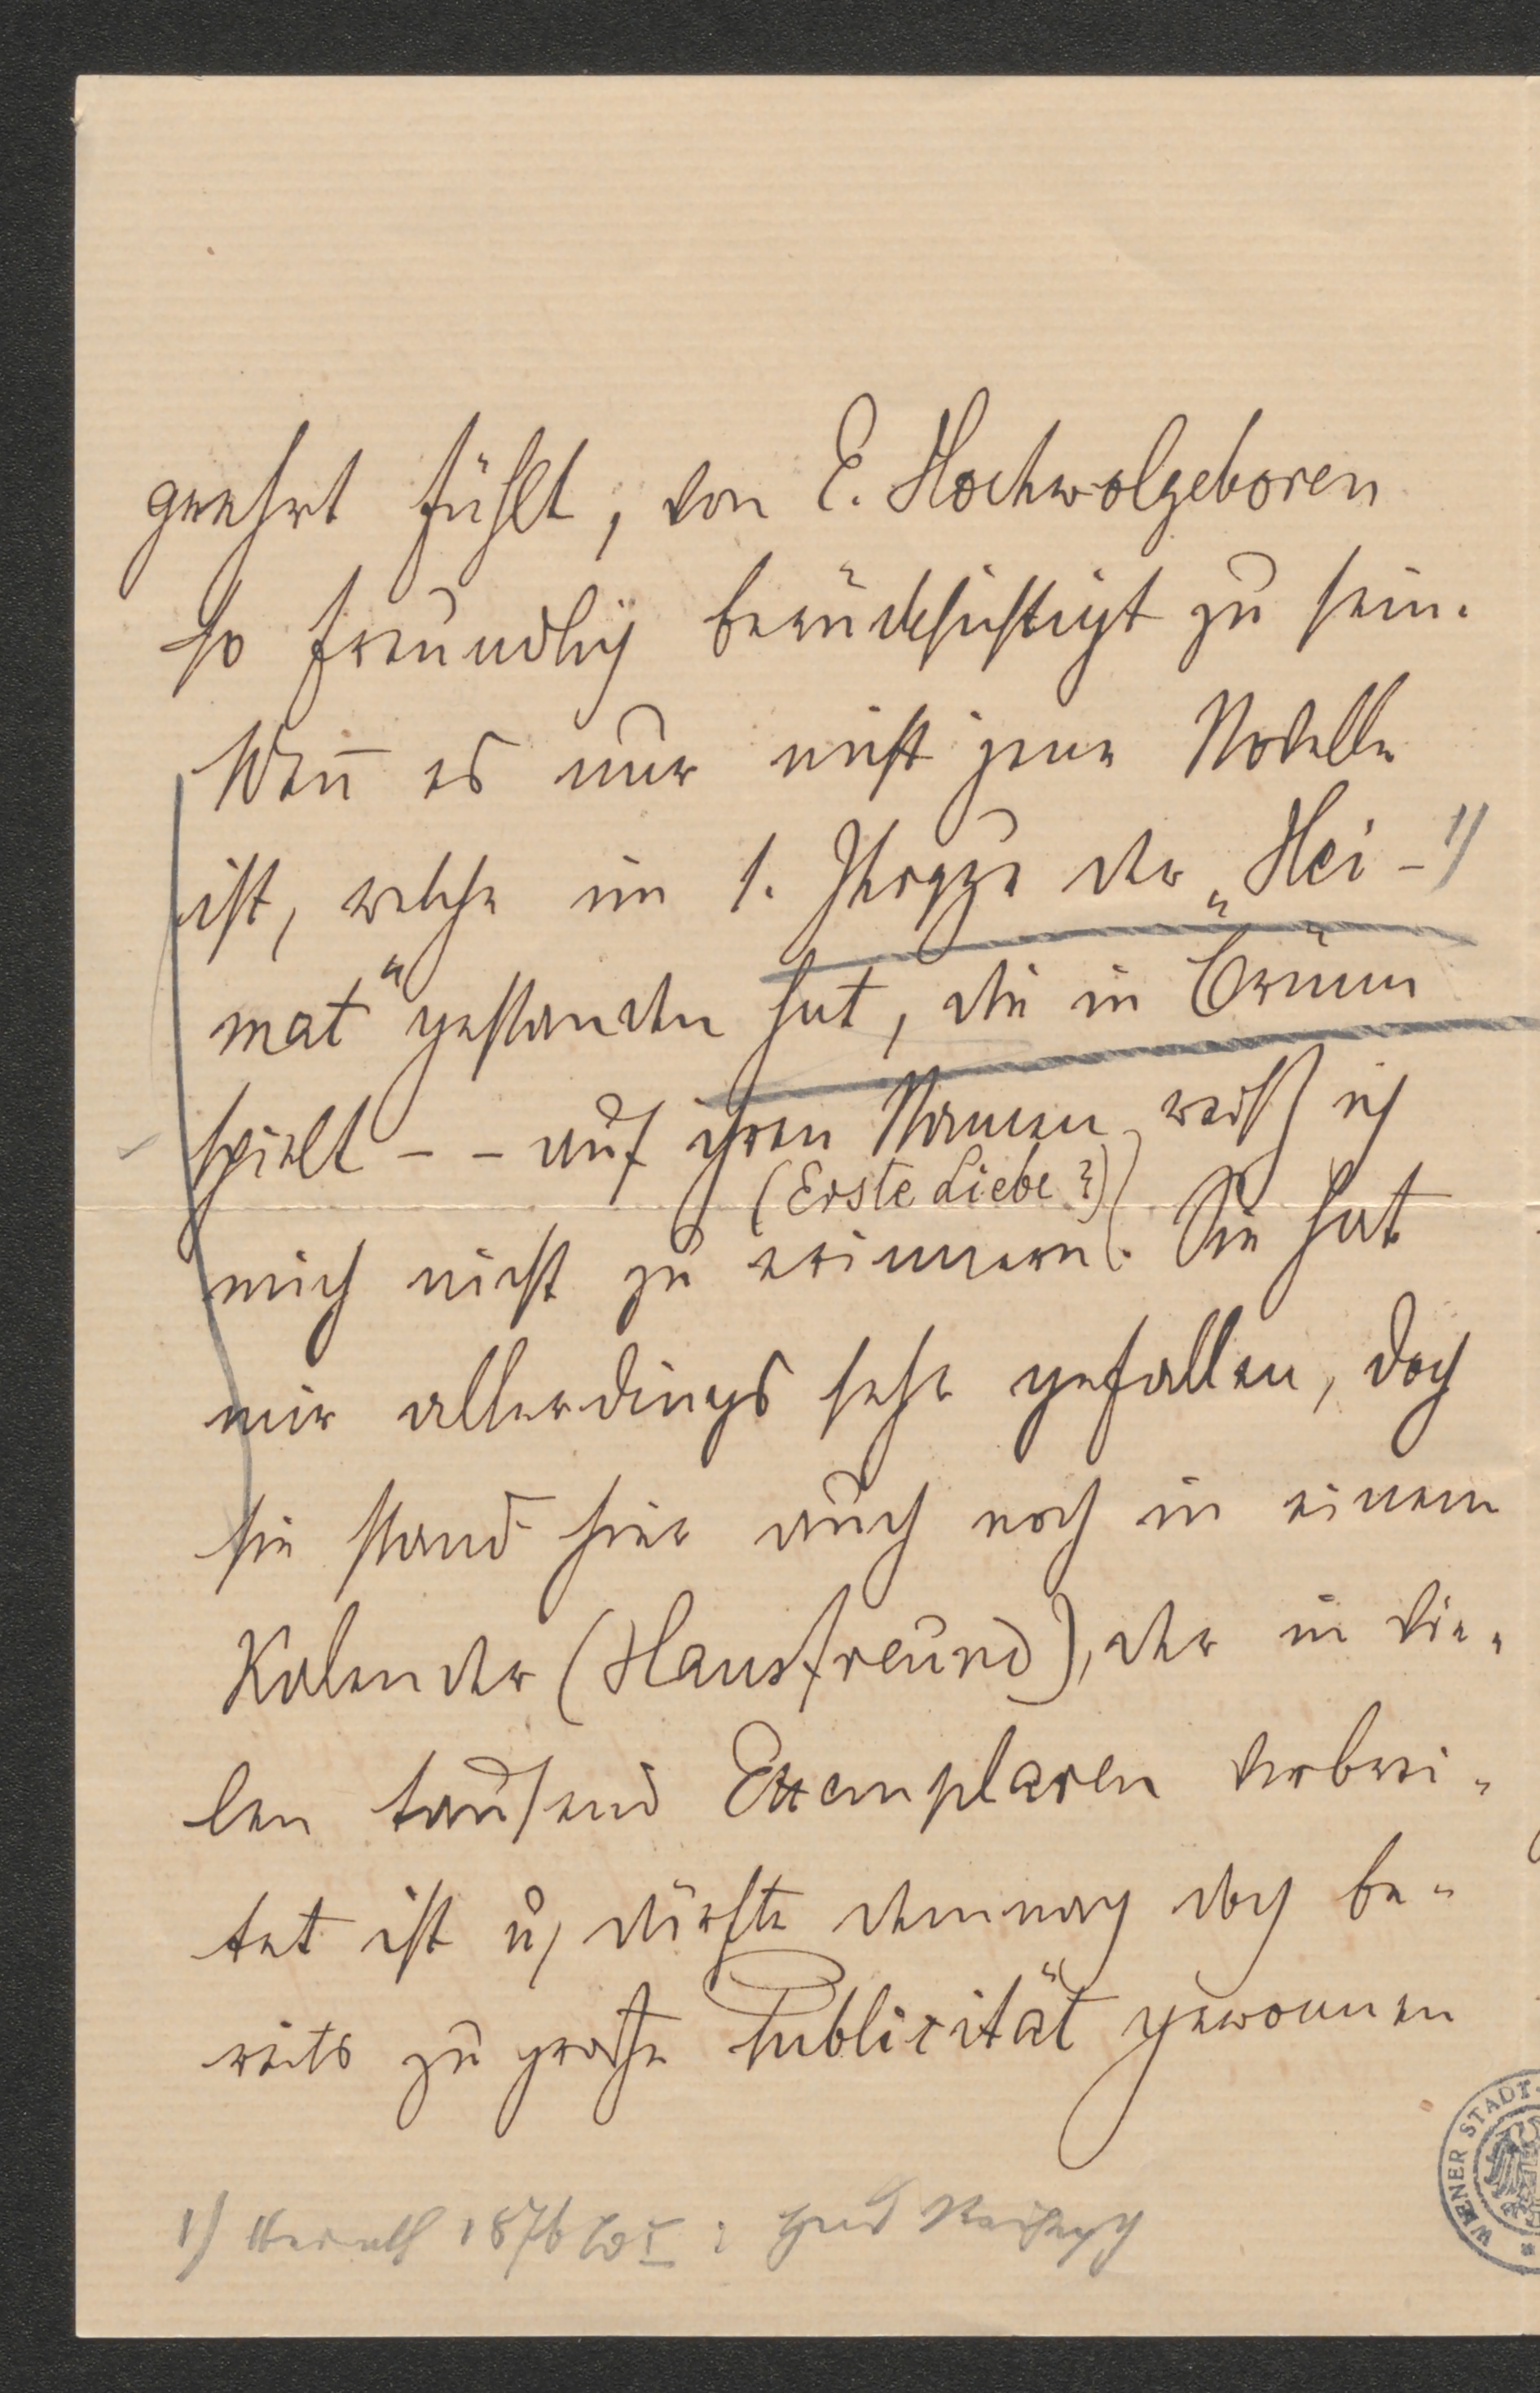 geehrt fühlt, von E. Hochwolgeboren
so freundlich berücksichtigt zu sein.
Wen̄ es nur nicht jene Novelle
ist, welche im 1. Jhrgge der „Hei- 1)
mat“ gestanden hat, die in Brünn
spielt - - auf ihren Namen weiß ich
(Erste Liebe?)
mich nicht zu erinnern. Sie hat
mir allerdings sehr gefallen, doch
sie stand hier auch noch in einem
Kalender (Hausfreund), der in vie-
len tausend Exemplaren verbrei-
tet ist u, dürfte demnach doch be-
reits zu große Publicität gewonnen
1) 1876 I :
WIENER STADT-